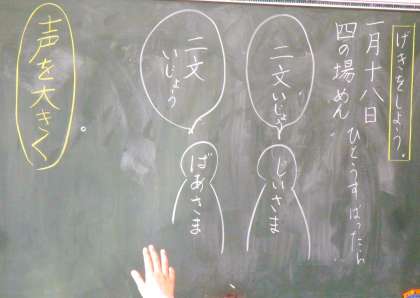 げきをしよう。
一月十八日
四の場めん
ひとうすばったら
二文いじょう
じいさま
二文
いじょう
ばあさま
声を大きく
。